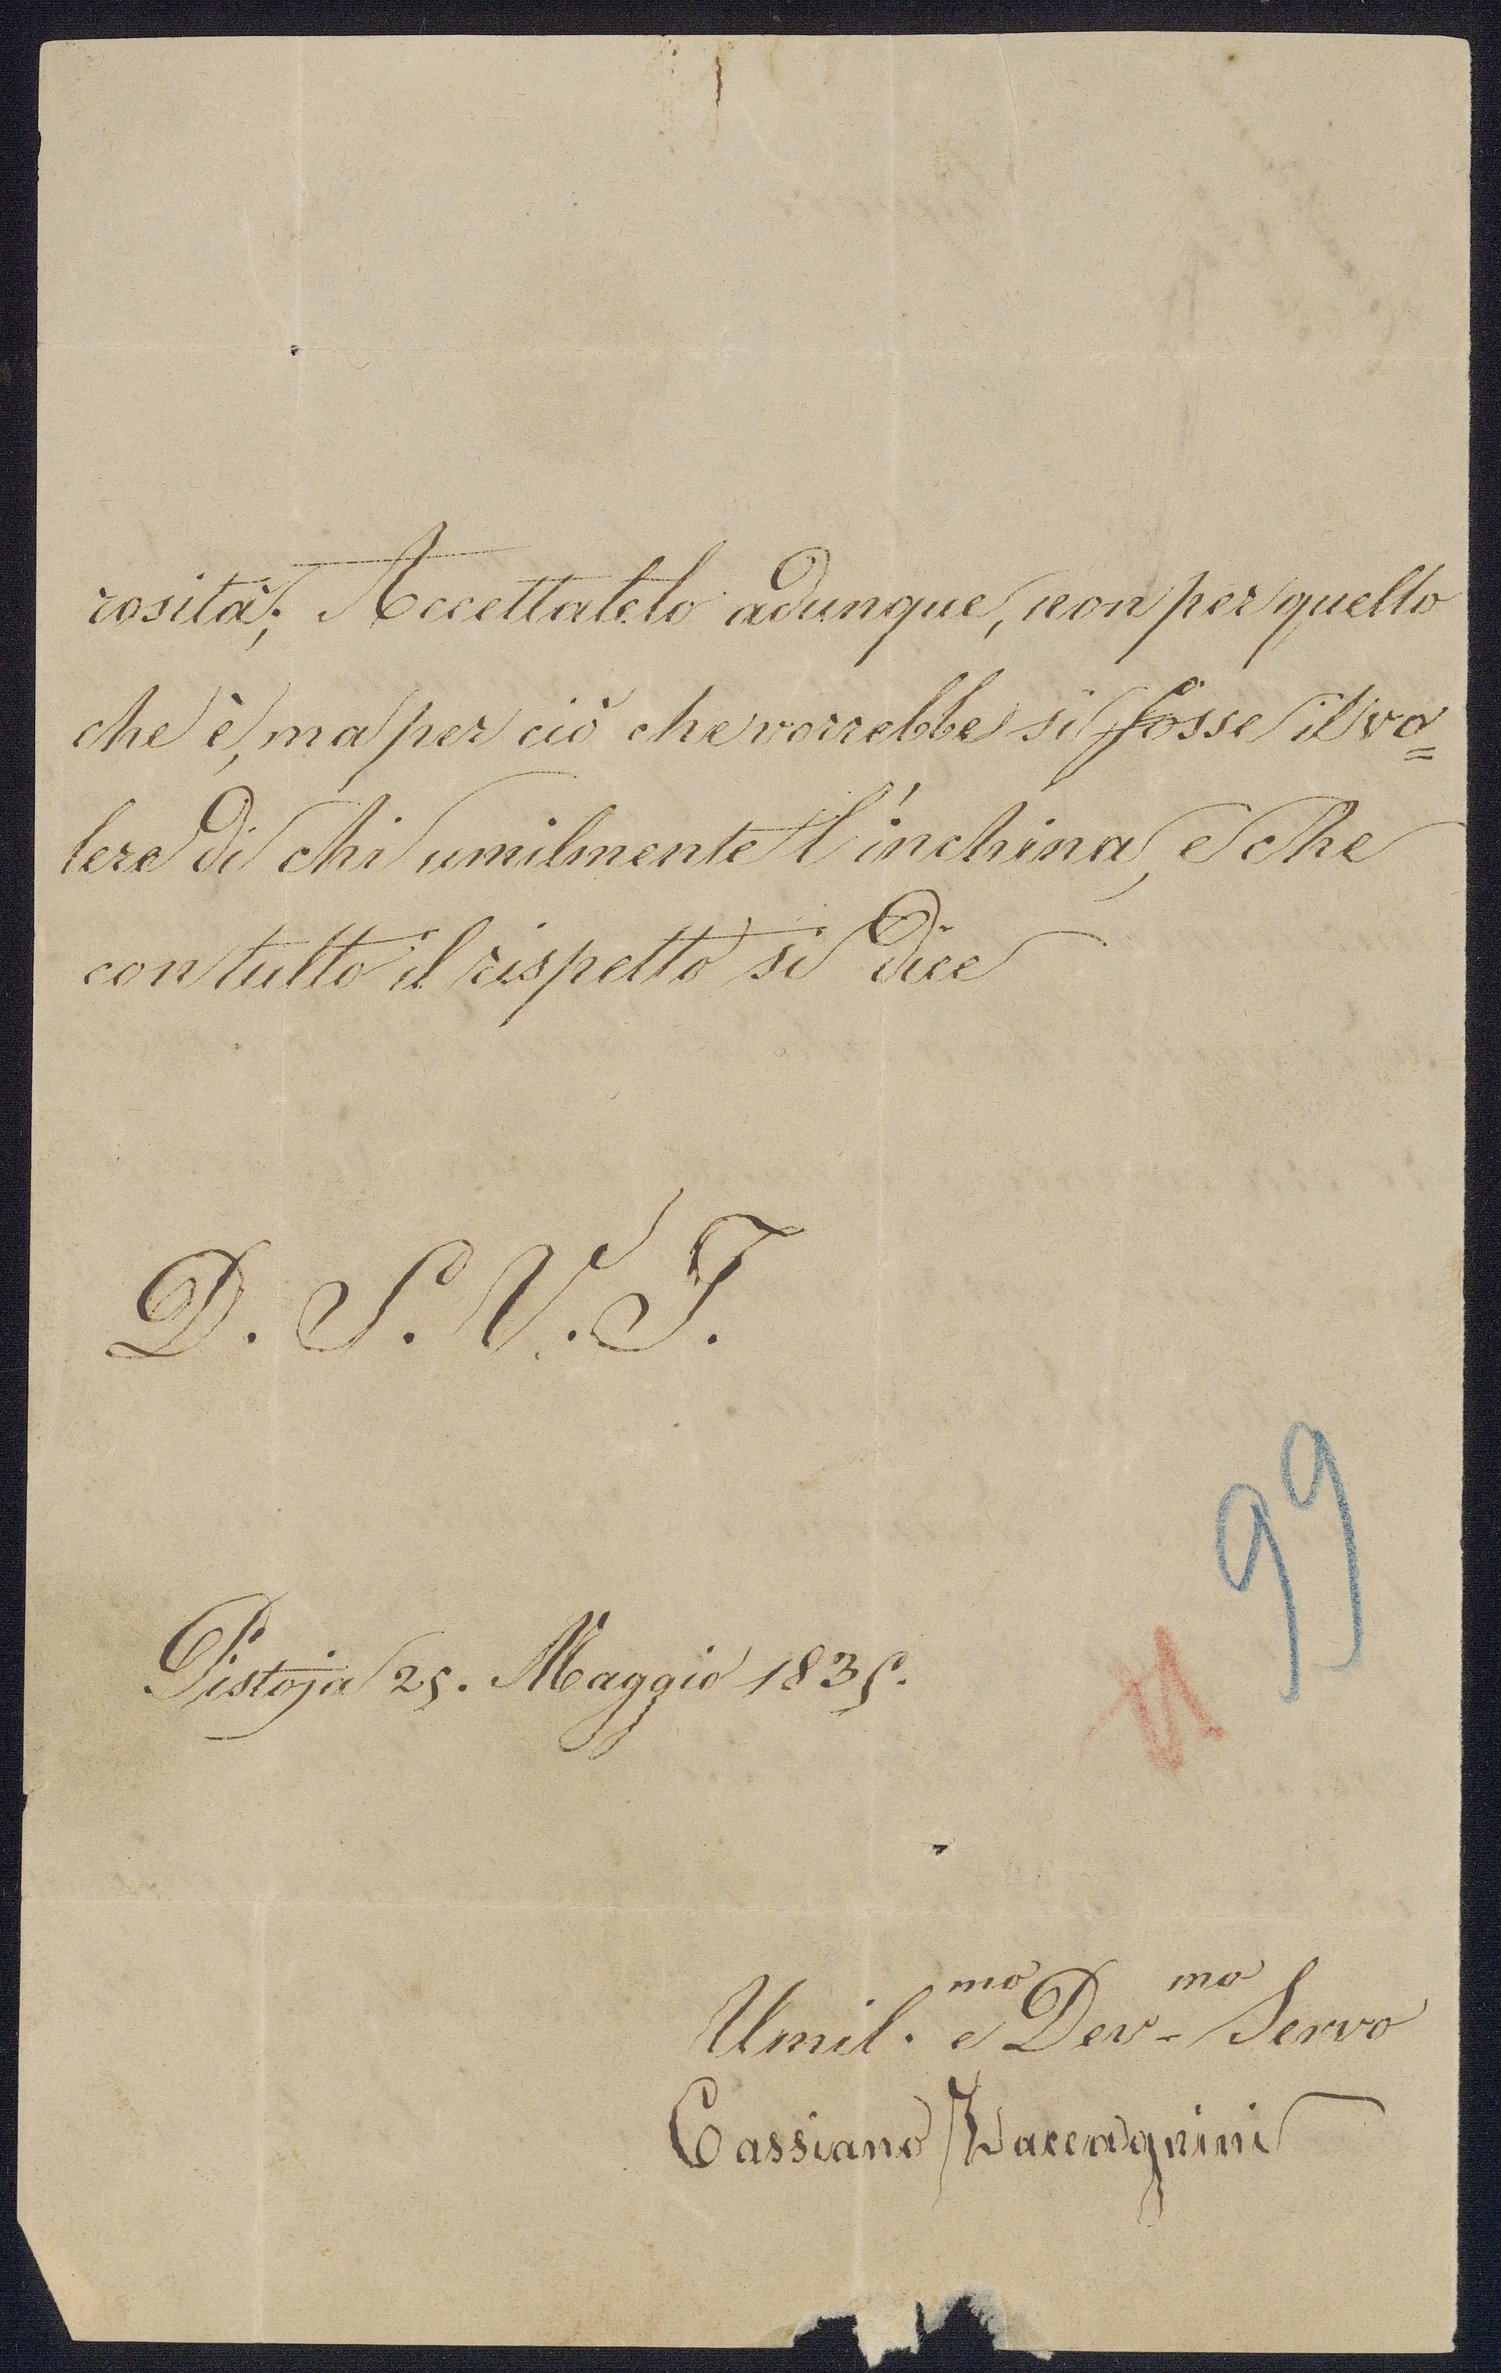 rosità; Accettatelo adunque, non per quello
che è, ma per ciò che vorrebbe si fosse il va=
lere di chi umilmente l'inchina, e che
con tutto il rispetto si dice
D. S. V. I.
99
Pistoja 25. Maggio 1835.
Umil.mo e Dev-mo Servo
Cassiano Vaccagnini